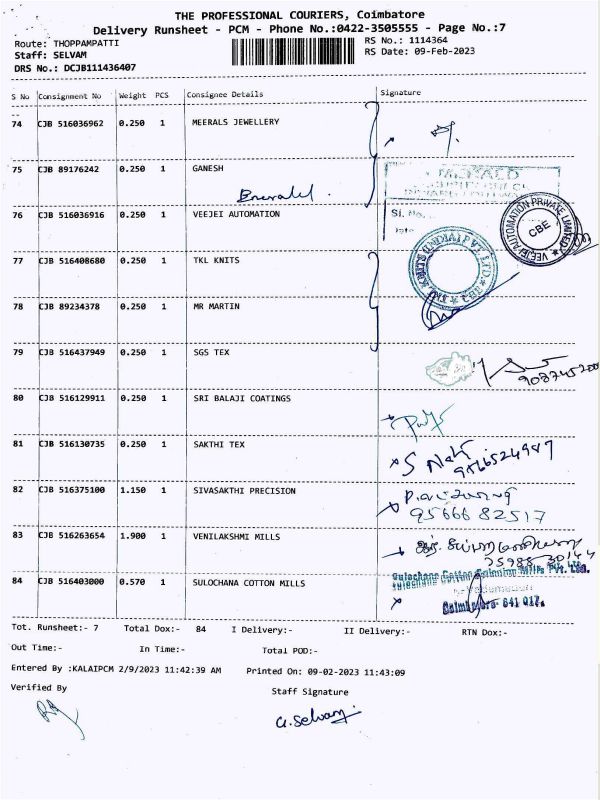 THE PROFESSIONAL COURIERS, Coimbatore
Delivery Runsheet - PCM - Phone No.:0422-3505555 - Page No.:7
Route: THOPPAMPATTI
RS No.: 1114364
Staff: SELVAM
RS Date: 09-Feb-2023
DRS No.: DCJB111436407
S No Consignment No Weight PCS Consignee Details Signature
74 CJB 516036962 0.250 1 MEERALS JEWELLERY
75 CJB 89176242 0.250 1 GANESH
76 CJB 516036916 0.250 1 VEEJEI AUTOMATION
Sl. No.
VEEJEI AUTOMATION PRIVATE LIMITED
CBE
77 CJB 516408680 0.250 1 TKL KNITS
TKL KNITS (INDIA) PVT. LTD.
78 CJB 89234378 0.250 1 MR MARTIN
79 CJB 516437949 0.250 1 SGS TEX
80 CJB 516129911 0.250 1 SRI BALAJI COATINGS
81 CJB 516130735 0.250 1 SAKTHI TEX
9566524987
82 CJB 516375100 1.150 1 SIVASAKTHI PRECISION
95666 82517
83 CJB 516263654 1.900 1 VENILAKSHMI MILLS
84 CJB 516403000 0.570 1 SULOCHANA COTTON MILLS
Sulochana Cotton Spinning Mills Pvt. Ltd.
Coimbatore- 641 017.
Tot. Runsheet:- 7 Total Dox:- 84 I Delivery:- II Delivery:- RTN Dox:-
Out Time:- In Time:- Total POD:-
Entered By :KALAIPCM 2/9/2023 11:42:39 AM Printed On: 09-02-2023 11:43:09
Verified By Staff Signature
G. Selvam